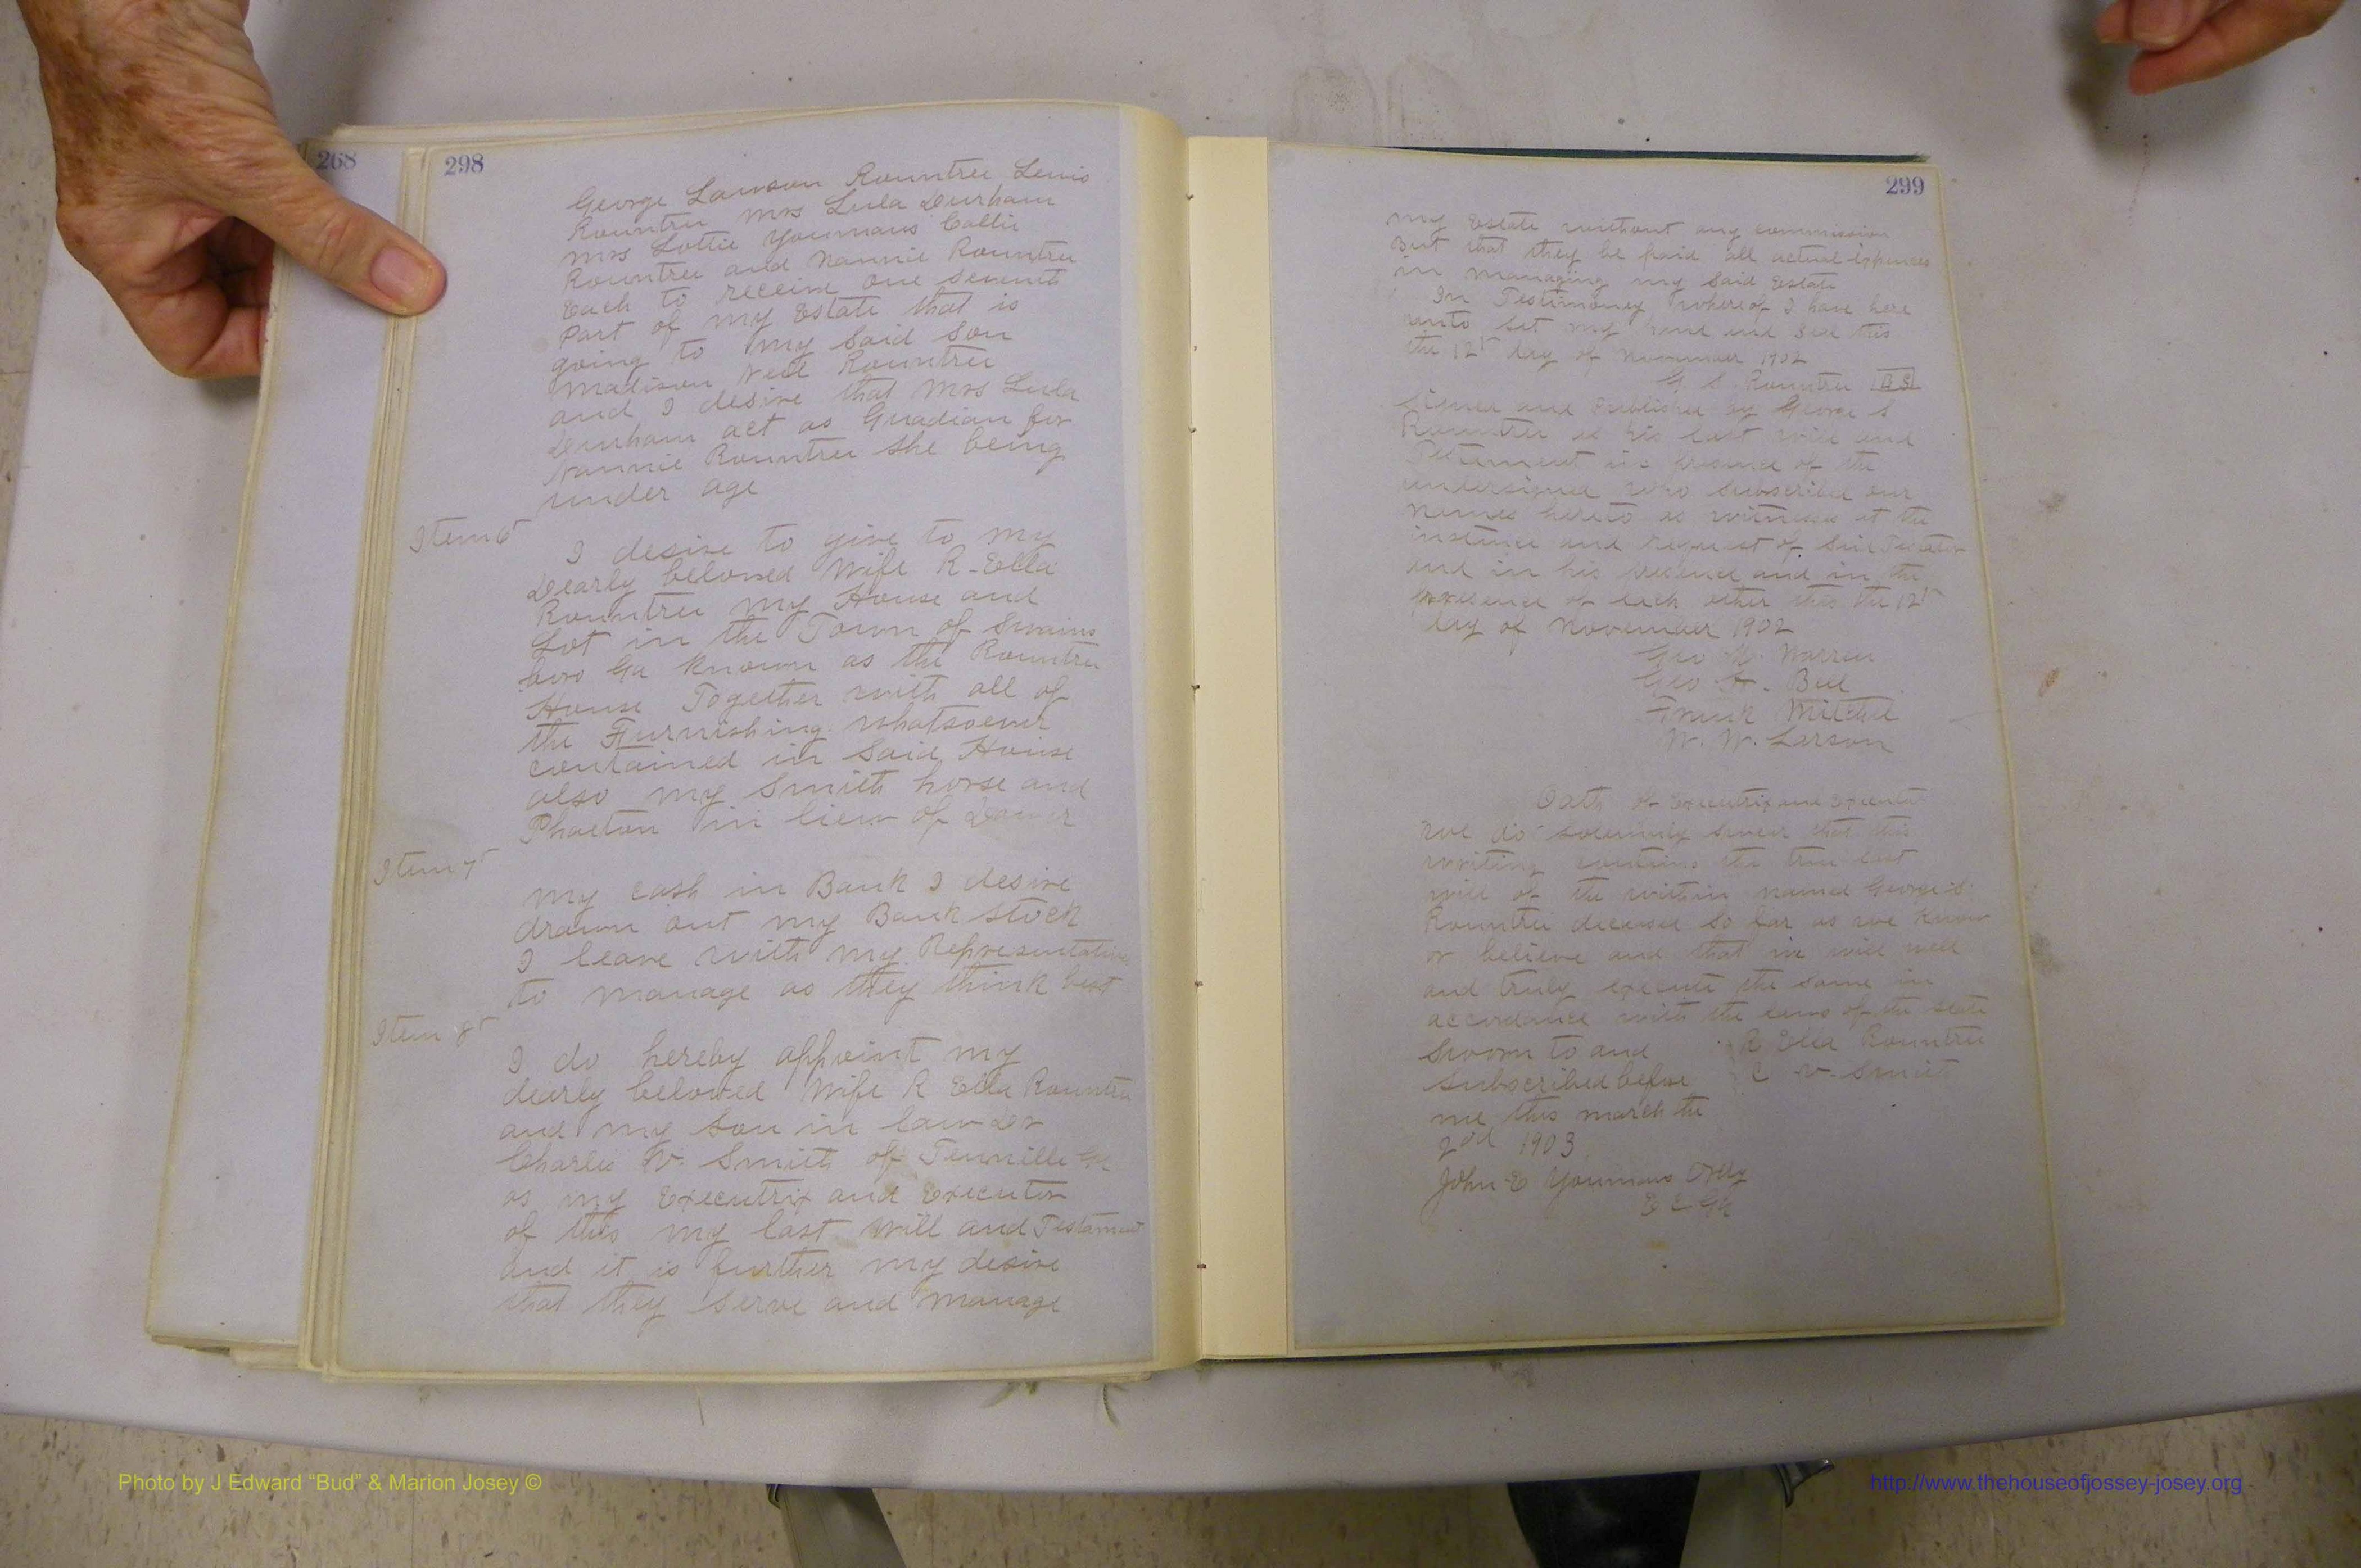 268
298
George Lawson Rountree Lewis
Rountree Mrs Lula Durham
Mrs Lottie Youmans Callie
Rountree and Nannie Rountree
Each to receive one seventh
Part of my Estate that is
going to my said son
Madison Neil Rountree
and I desire that Mrs Lula
Durham act as Guadian for
Nannie Rountree she being
under age
Item 6th
I desire to give to my
Dearly beloved Wife R. Ella
Rountree my House and
Lot in the Town of Swains
boro Ga known as the Rountree
House Together with all of
the Furnishing whatsoever
contained in said House
also my Smith horse and
Phaeton in lieu of Dower
Item 7th
my cash in Bank I desire
drawn out my Bank stock
I leave with my Representative
to manage as they think best
Item 8th
I do hereby appoint my
dearly beloved Wife R Ella Rountree
and my son in law Dr
Charlie V. Smith of Tennille Ga
as my Executrix and Executor
of this my last will and Testament
and it is further my desire
that they serve and manage
299
my Estate without any commission
But that they be paid all actual expences
in managing my said Estate
In Testimoney whereof I have here
unto set my hand and seal this
the 12th day of November 1902
G S Rountree
Signed and Published by George S
Rountree as his last will and
Testament in presence of the
undersigned who subscribed our
names hereto as witnesses at the
instance and request of said Testator
and in his presence and in the
presence of each other this the 12th
day of November 1902
Geo Warren
Geo Bell
Frank Mitchel
W. W. Larson
Oath of Executrix and Executor
we do solemnly swear that this
writing contains the true last
will of the within named George S
Rountree deceased so far as we know
or believe and that we will well
and truly execute the same in
accordance with the laws of the state
Sworn to and R Ella Rountree
subscribed before C V. Smith
me this march the
2nd 1903
John E Youmans Ordy
E C Ga
Photo by J Edward “Bud” & Marion Josey ©
http://www.thehouseofjossey-josey.org